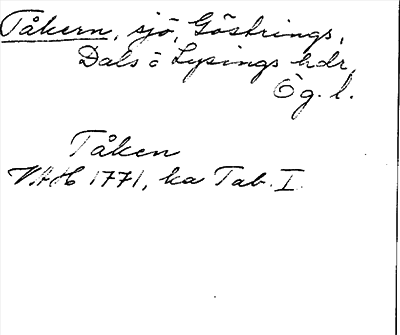 Tåkern, sjö, Göstrings,
Dals o Lysings hdr,
Ög. l.
Tåken
VAH 1771, ka Tab. I.